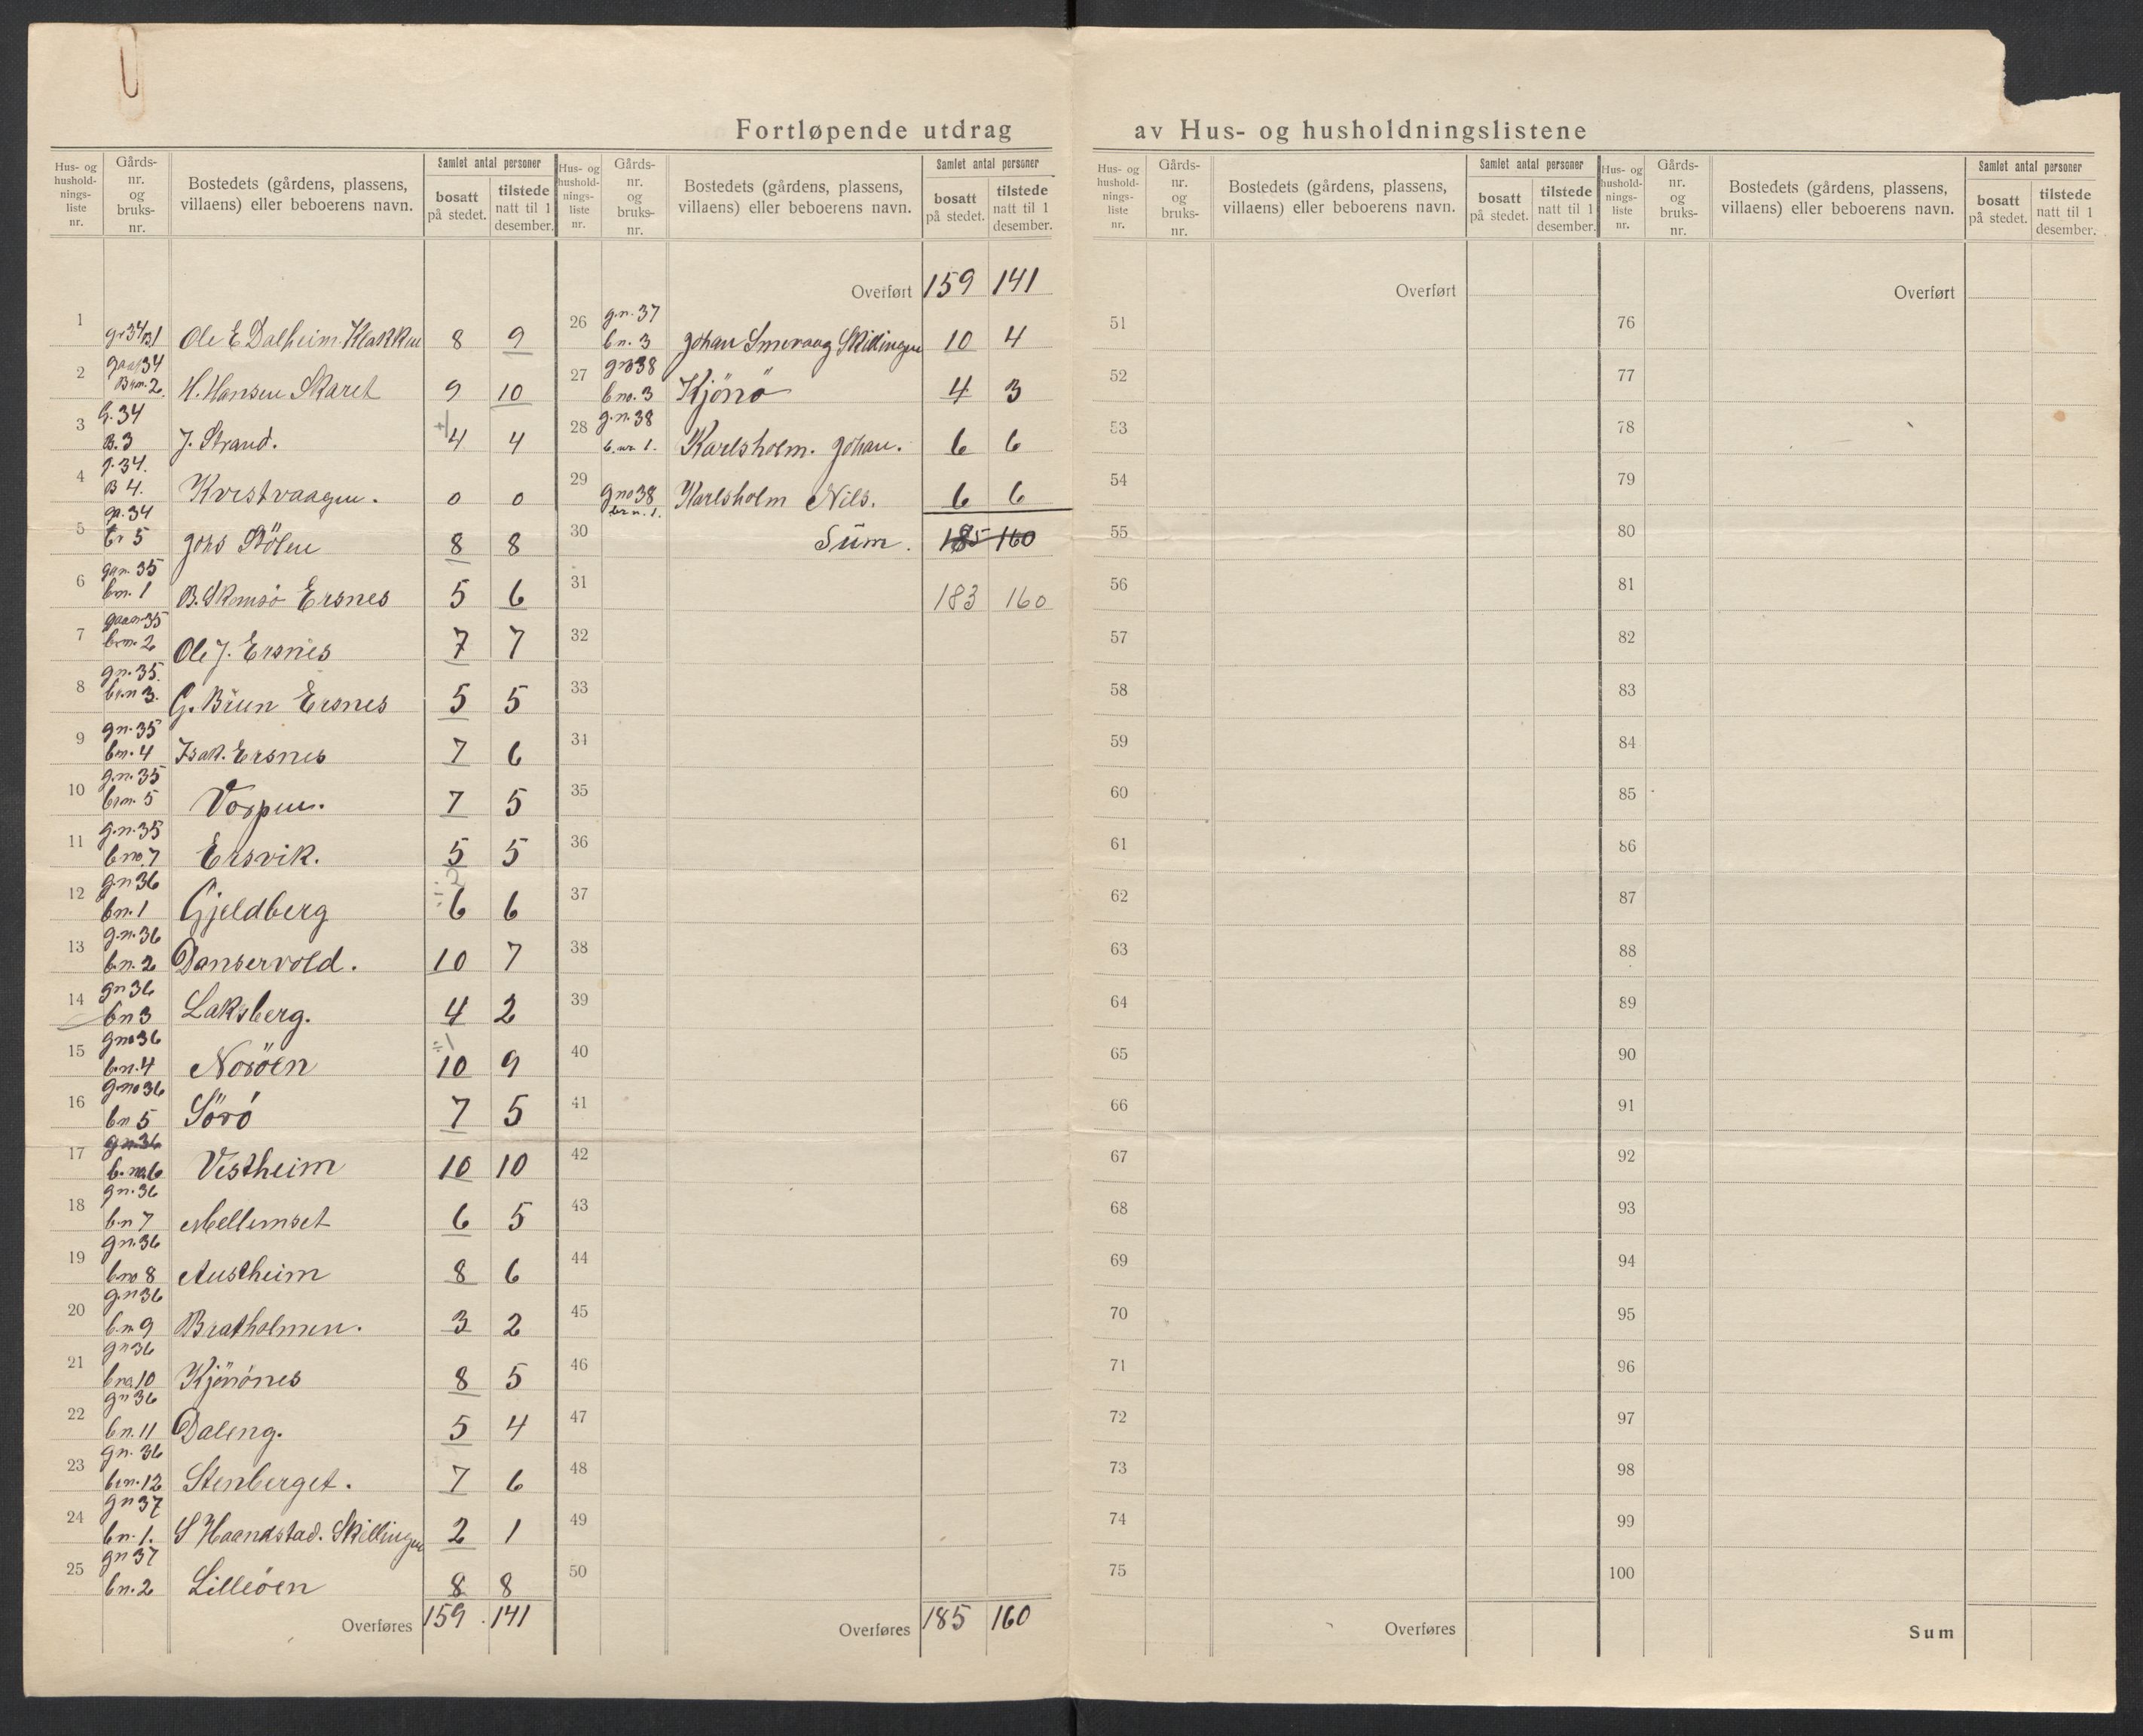 Fortløpende utdrag av Hus- og husholdningslistene
Hus- og husholdnings-liste nr. | Gårds-nr. og bruks-nr. | Bostedets (gårdens, plassens, villaens) eller beboerens navn. | Samlet antal personer | bosatt på stedet. | tilstede natt til 1 desember.
Hus- og hushold-nings-liste nr. | Gårds-nr. og bruks-nr. | Bostedets (gårdens, plassens, villaens) eller beboerens navn. | Samlet antal personer | bosatt på stedet. | tilstede natt til 1 desember.
1 | gr 34 B1 | Ole E Dalheim Klakken | 8 | 9
2 | gaar 34 Brn. 2. | H. Hansen Skaret | 9 | 10
3 | G. 34 B. 3 | J. Strand. | + 4 | 4
4 | g. 34. B 4. | Kvistvaagen. | 0 | 0
5 | ga. 34 br 5 | Johs Stölen | 8 | 8
6 | gan. 35 bn. 1 | B. Skomsö Ersnes | 5 | 6
7 | gaan 35 brn. 2 | Ole J. Ersnes | 7 | 7
8 | gn. 35. brn 3. | G. Brun Ersnes | 5 | 5
9 | gn. 35 bn. 4 | Isak. Ersnes | 7 | 6
10 | g.n. 35 brn. 5 | Vorpen. | 7 | 5
11 | g.n. 35 bno. 7 | Ersvik. | 5 | 5
12 | gn 36 bn. 1 | Gjeldberg | ÷2 6 | 6
13 | g.n. 36 b.n. 2 | Danservold. | 10 | 7
14 | gn 36 bn 3 | Laksberg. | 4 | 2
15 | gno 36 b.n. 4 | Noröen | ÷1 10 | 9
16 | g.no 36 bn 5 | Sörö | 7 | 5
17 | gn 36 b. no. 6 | Vestheim | 10 | 10
18 | gn. 36 b.n 7 | Mellemset | 6 | 5
19 | gn. 36 bno 8 | Austheim | 8 | 6
20 | g.n 36 b.n. 9 | Bratholmen. | 3 | 2
21 | gn 36 bno. 10 | Kjönönes | 8 | 5
22 | gn 36 bn. 11 | Daleng. | 5 | 4
23 | gn. 36 brn. 12 | Stenberget. | 7 | 6
24 | gn 37 bn. 1. | S Haandstad. Skillingen | 2 | 1
25 | gn 37 bn. 2 | Lilleöen | 8 | 8
Overføres | 159 | 141
Overført | 159 | 141
26 | g.n. 37 b.n. 3 | Johan Smevaag Skillingen | 10 | 4
27 | gno 38 bno. 3 | Kjönö | 4 | 3
28 | g.n. 38 b. nr. 1. | Karlsholm. Johan. | 6 | 6
29 | g no 38 br n. 1. | Karlsholm Nils. | 6 | 6
30 | Sum. | 185 | 160
31 | 183 | 160
32
33
34
35
36
37
38
39
40
41
42
43
44
45
46
47
48
49
50
Overføres | 185 | 160
Hus- og hushold-nings-liste nr. | Gårds-nr. og bruks-nr. | Bostedets (gårdens, plassens, villaens) eller beboerens navn. | Samlet antal personer | bosatt på stedet. | tilstede natt til 1 desember.
Overført
51
52
53
54
55
56
57
58
59
60
61
62
63
64
65
66
67
68
69
70
71
72
73
74
75
Overføres
Hus- og hushold-nings-liste nr. | Gårds-nr. og bruks-nr. | Bostedets (gårdens, plassens, villaens) eller beboerens navn. | Samlet antal personer | bosatt på stedet. | tilstede natt til 1 desember.
Overført
76
77
78
79
80
81
82
83
84
85
86
87
88
89
90
91
92
93
94
95
96
97
98
99
100
Sum